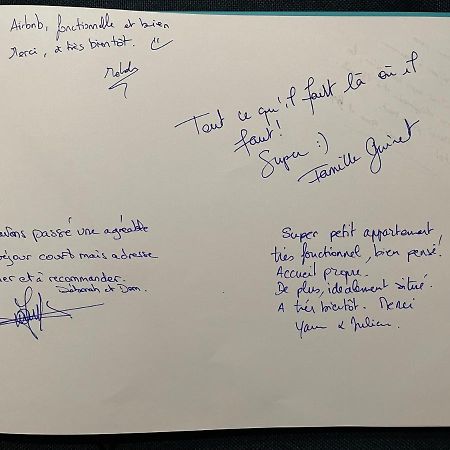 Airbnb, fonctionnelle et bien
Merci, a très bientôt.
Tout ce qu'il faut là où il
faut!
Super :)
Famille Guinet
avons passé une agréable
séjour court mais adresse
et à recommander.
Deborah et Dom.
Super petit appartement,
très fonctionnel, bien pensé!
Accueil propre.
De plus, idéalement situé.
A très bientôt. Merci
Yann & Julien.